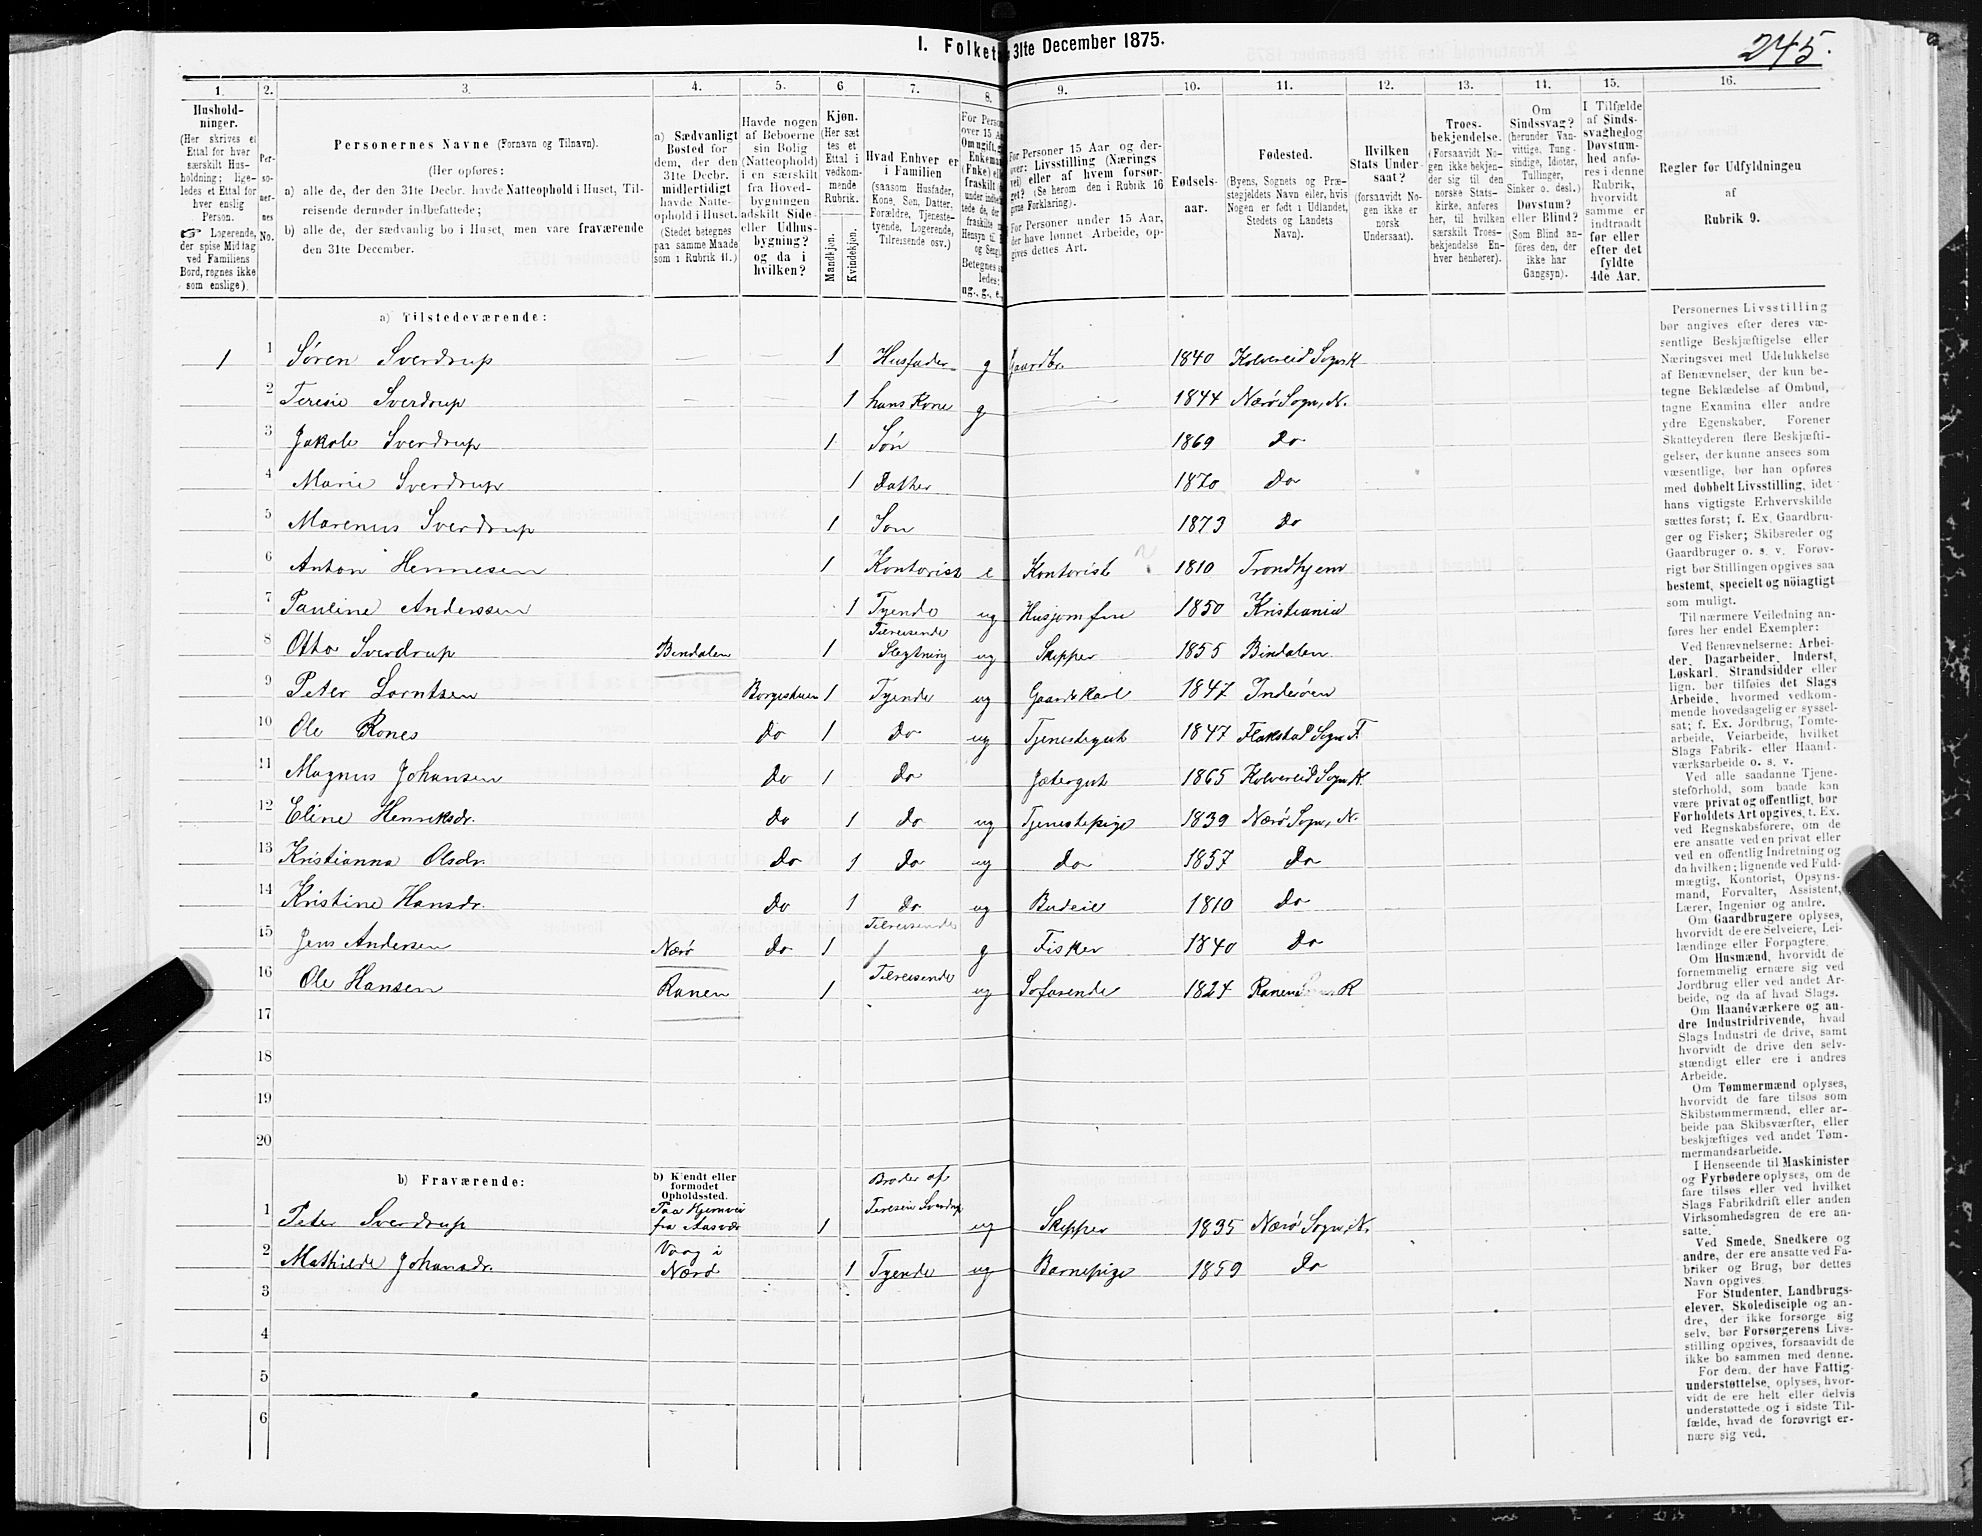 I. Folket 31te December 1875.
245.
1. 2. 3. 4. 5. 6 7. 8. 9. 10. 11. 12. 13. 14. 15. 16.
Hushold-
ninger.
(Her skrives et
Ettal for hver
særskilt Hus-
holdning; lige-
ledes et Ettal for
hver enslig
Person.
☞ Logerende,
der spise Middag
ved Familiens
Bord, regnes ikke
som enslige).
Per-
so-
ner-
nes
No.
Personernes Navne (Fornavn og Tilnavn).
(Her opføres:
a) alle de, der den 31te Decbr. havde Natteophold i Huset, Til-
reisende derunder indbefattede;
b) alle de, der sædvanlig bo i Huset, men vare fraværende
den 31te December.
a) Sædvanligt
Bosted for
dem, der den
31te Decbr.
midlertidigt
havde Natte-
ophold i Huset.
(Stedet betegnes
paa samme Maade
som i Rubrik 11.)
Havde nogen
af Beboerne
sin Bolig
(Natteophold)
i en særskilt
fra Hoved-
bygningen
adskilt Side-
eller Udhus-
bygning?
og da i
hvilken?
Kjøn.
(Her sæt
tes et
Ettal i
vedkom-
mende
Rubrik.
Mandkjøn.
Kvindekjøn.
Hvad Enhver er
i Familien
(saasom Husfader,
Kone, Søn, Datter,
Forældre, Tjeneste-
tyende, Logerende,
Tilreisende osv.)
For Perso
over 15 A
Om ugift, g
Enkema
(Fnke) el
fraskilt
under indbe
tede de, de
fraskilte
Hensyn til
og Seng
Betegnes s
ledes:
ug., g., e.
For Personer 15 Aar og der-
over: Livsstilling (Nærings
vei) eller af hvem forsør-
get? (Se herom den i Rubrik 16
givne Forklaring).
For Personer under 15 Aar,
der have lønnet Arbeide, op-
gives dettes Art.
Fødsels-
aar.
Fødested.
(Byens, Sognets og Præ-
stegjeldets Navn eller, hvis
Nogen er født i Udlandet,
Stedets og Landets
Navn).
Hvilken
Stats Under-
saat?
(forsaavidt No-
gen ikke er
norsk
Undersaat).
Troes-
bekjendelse.
(Forsaavidt No-
gen ikke bekjen-
der sig til den
norske Stats-
kirke, anføres
her, til hvilken
særskilt Troes-
bekjendelse En-
hver henhører).
Om
Sindssvag?
(herunder Van-
vittige, Tung-
sindige, Idioter,
Tullinger,
Sinker o. desl.)
Døvstum?
eller Blind?
(Som Blind an-
føres den, der
ikke har
Gangsyn).
I Tilfælde
af Sinds-
svaghed og
Døvstum-
hed anfø-
res i denne
Rubrik,
hvorvidt
samme er
indtraadt
før eller
efter det
fyldte
4de Aar.
Regler for Udfyldningen
af
Rubrik 9.
a) Tilstedeværende:
1 1 Søren Sverdrup — — 1 Husfader g Gaardbr. 1840 Kolvereid Sogn K
2 Teresie Sverdrup — — 1 hans Kone g — 1844 Nærø Sogn, N.
3 Jakob Sverdrup 1 Søn 1869 Do
4 Marie Sverdrup 1 Datter 1870 Do
5 Marenus Sverdrup 1 Søn 1873 Do
6 Anton Hennesen 1 Kontorist e Kontorist 1810 Trondhjem
7 Pauline Anderssen 1 Tyende ug Husjomfru 1850 Kristiania
8 Otto Sverdrup Bindalen 1 Tilreisende Slegtning ug Skipper 1855 Bindalen
9 Peter Lorntsen Borgestuen 1 Tyende ug Gaardskarl 1847 Inderøen
10 Ole Rones Do 1 Do ug Tjenestegut 1847 Flakstad Sogn F.
11 Magnus Johansen Do 1 Do Jætergut 1865 Kolvereid Sogn K.
12 Eline Henriksdr. Do 1 Do ug Tjenestepige 1839 Nærø Sogn, N.
13 Kristianna Olsdr. Do 1 Do ug Do 1857 Do
14 Kristine Hansdr. Do 1 Do ug Budeie 1810 Do
15 Jens Andersen Nærø Do 1 Tilreisende g Fisker 1840 Do
16 Ole Hansen Ranen 1 Tilreisende ug Søfarende 1824 Ranen R
17
18
19
20
b) Fraværende:
b) Kjendt eller
formodet
Opholdssted.
1 Peter Sverdrup Paa Hjemvei fra Aasvær 1 Broder af Teresie Sverdrup ug Skipper 1835 Nærø Sogn, N.
2 Mathilde Johansdr. Vaag i Nærø 1 Tyende ug Barnepige 1859 Do
3
4
5
6
Personernes Livsstilling
bør angives efter deres væ-
sentlige Beskjæftigelse eller
Næringsvei med Udelukkelse
af Benævnelser, der kun be-
tegne Beklædelse af Ombud,
tagne Examina eller andre
ydre Egenskaber. Forener
Skatteyderen flere Beskjæfti-
gelser, der kunne ansees som
væsentlige, bør han opføres
med dobbelt Livsstilling, idet
hans vigtigste Erhvervskilde
sættes først; f. Ex. Gaardbru-
ger og Fisker; Skibsreder og
Gaardbruger o. s. v. Forøv-
rigt bør Stillingen opgives saa
bestemt, specielt og nøiagtigt
som muligt.
Til nærmere Veiledning an-
føres her endel Exempler:
Ved Benævnelserne: Arbei-
der, Dagarbeider, Inderst,
Løskarl, Strandsidder eller
lign. bør tilføies det Slags
Arbeide, hvormed vedkom-
mende hovedsagelig er syssel-
sat; f. Ex. Jordbrug, Tomte-
arbeide, Veiarbeide, hvilket
Slags Fabrik- eller Haand-
værksarbeide o. s. v.
Ved alle saadanne Tjene-
steforhold, som baade kan
være privat og offentligt, bør
Forholdets Art opgives, t. Ex.
ved Regnskabsførere, om de
ere ansatte ved en privat eller
ved en offentlig Indretning og
da hvilken; lignende ved Fuld-
mægtig, Kontorist, Opsyns-
mand, Forvalter, Assistent,
Lærer, Ingeniør og andre.
Om Gaardbrugere oplyses,
hvorvidt de ere Selveiere, Lei-
lændinge eller Forpagtere.
Om Husmænd, hvorvidt de
fornemmelig ernære sig ved
Jordbrug eller ved andet Ar-
beide, og da af hvad Slags.
Om Haandværkere og an-
dre Industridrivende, hvad
Slags Industri de drive, samt
hvorvidt de drive den selv-
stændigt eller ere i andres
Arbeide.
Om Tømmermænd oplyses,
hvorvidt de fare tilsøs som
Skibstømmermænd, eller ar-
beide paa Skibsværfter, eller
beskjæftiges ved andet Tøm-
mermandsarbeide.
I Henseende til Maskinister
og Fyrbødere oplyses, om de
fare tilsøs eller ved hvilket
Slags Fabrikdrift eller anden
Virksomhedsgren de ere an-
satte.
Ved Smede, Snedkere og
andre, der ere ansatte ved Fa-
briker og Brug, bør dettes
Navn opgives.
For Studenter, Landbrugs-
elever, Skoledisciple og an-
dre, der ikke forsørge sig
selv, bør Forsørgerens Livs-
stilling opgives, forsaavidt de
ikke bo sammen med denne.
For dem, der have Fattig-
understøttelse, oplyses, hvor-
vidt de ere helt eller delvis
understøttede og i sidste Til-
fælde, hvad de forøvrigt er-
nære sig ved.